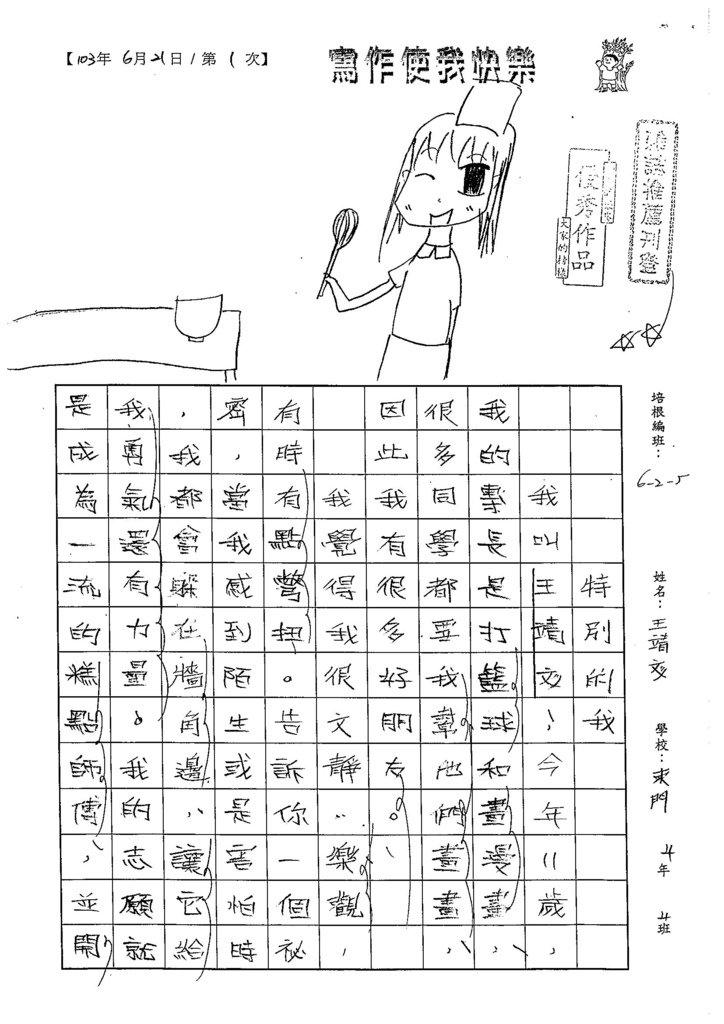 【103年6月21日/第1次】
寫作使我快樂
優秀作品
推薦刊登
培根編班：6-2-5
姓名：王靖文
學校：東門
4年
4班
特別的我
我叫王靖文，今年11歲，
我的專長是打籃球和畫漫畫，
很多同學都要我幫他們畫畫，
因此我有很多好朋友。
我覺得我很文靜、樂觀，
有時有點彆扭。告訴你一個祕
密，當我感到陌生或是害怕時
，我都會躲在牆角邊，讓它給
我勇氣還有力量。我的志願就
是成為一流的糕點師傅，並開